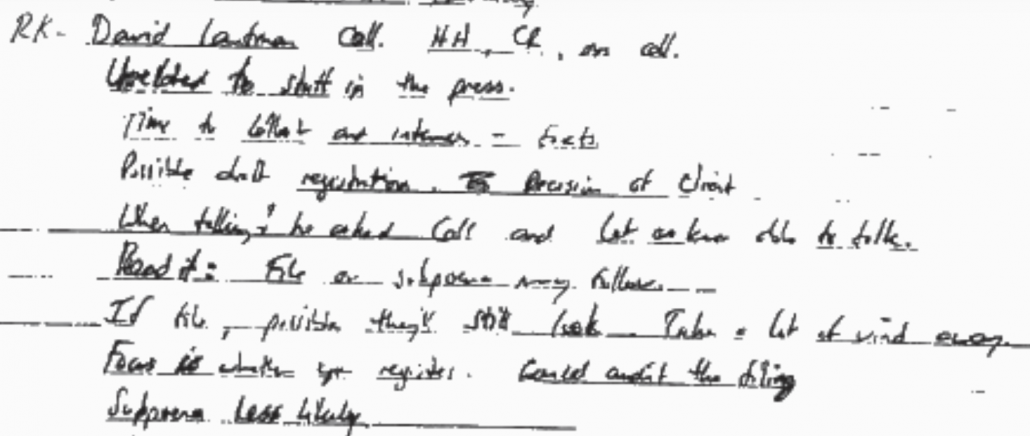 RK- David Laufman Call. HH, CR, on call.
to stuff in the press.
Time to collect and interview - facts
Possible draft registration. Decision of client
When talking, he asked Call and let us know able to talk.
Read it: File or subpoena may follow.
If file, possible they'll still look Takes a lot of wind away
Focus is whether you register. Could audit the filing
Subpoena less likely